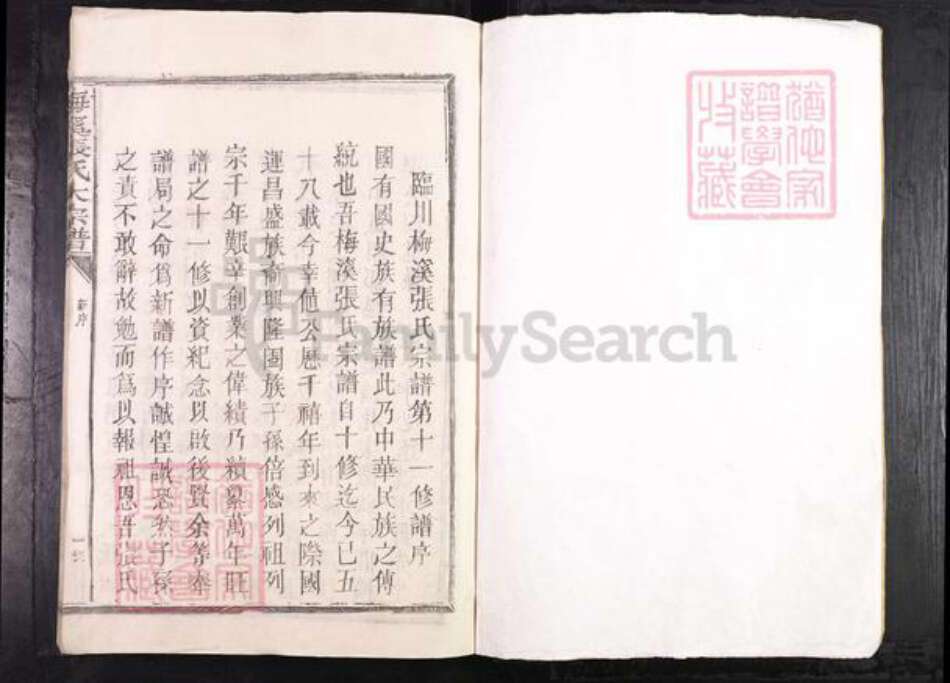 猶他家
譜學會
收藏
臨川梅溪張氏宗譜第十一修譜序
國有國史族有族譜此乃中華民族之傳
統也吾梅溪張氏宗譜自十修迄今已五
十八載今幸值公曆千禧年到來之際國
運昌盛族裔興隆闔族子孫倍感列祖列
宗千年艱辛創業之偉績乃續纂萬年旺
譜之十一修以資紀念以啟後賢余等奉
譜局之命爲新譜作序誠惶誠恐然子孫
之責不敢辭故勉而爲以報祖恩吾張氏
梅溪張氏大宗譜
新序
FamilySearch